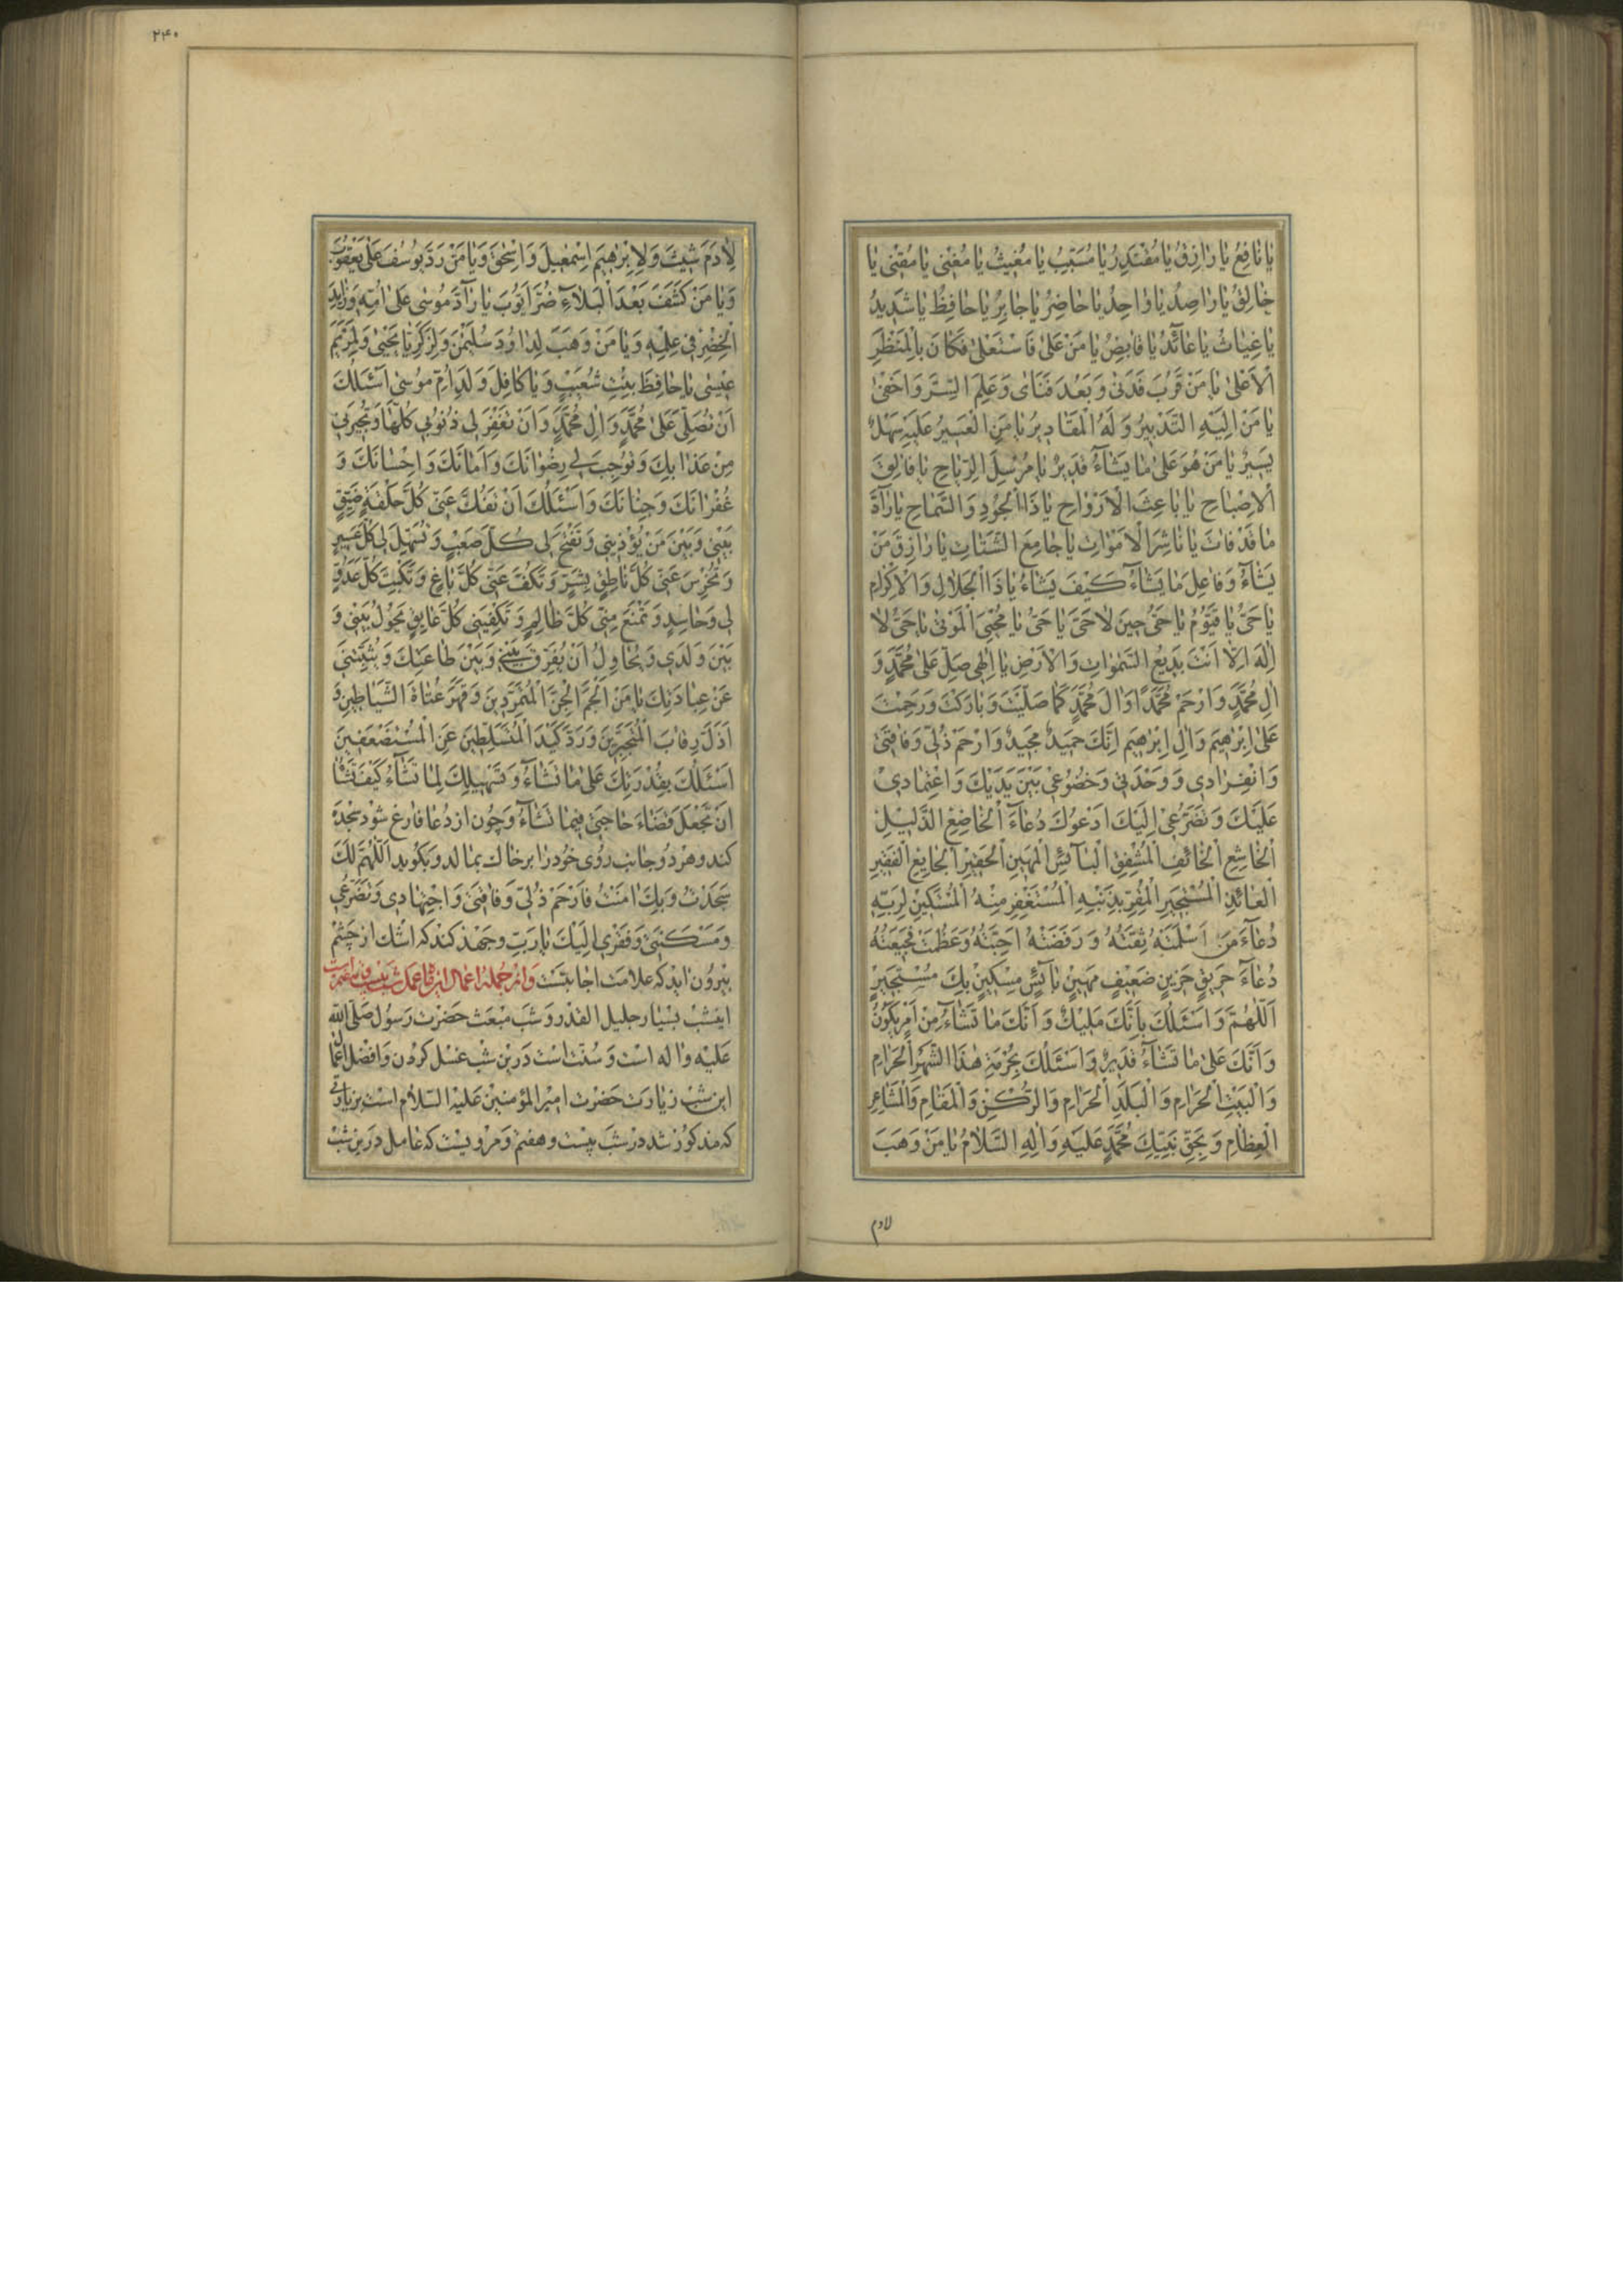 یا نافِعُ یا رازِقُ یا مُقْتَدِرُ یا مُسَبِّبُ یا مُغیثُ یا مُغْنی یا مُقْنی یا
خالِقُ یا راصِدُ یا واحِدُ یا حاضِرُ یا جابِرُ یا حافِظُ یا شَدیدُ
یا غِیاثُ یا عآئِدُ یا قابِضُ یا مَنْ عَلیٰ فَاسْتَعْلیٰ فَکانَ بِالْمَنْظَرِ
الْاَعْلیٰ یا مَنْ قَرُبَ فَدَنیٰ وَ بَعُدَ فَنَایٰ وَ عَلِمَ السِّرَّ وَ اَخْفیٰ
یا مَنْ اِلَیْهِ التَّدْبیرُ وَ لَهُ الْمَقادیرُ یا مَنِ الْعَسیرُ عَلَیْهِ سَهْلٌ
یَسیرٌ یا مَنْ هُوَ عَلیٰ ما یَشآءُ قَدیرٌ یا مُرْسِلَ الرِّیاحِ یا فالِقَ
الْاِصْباحِ یا باعِثَ الْاَرْواحِ یا ذَا الْجُودِ وَ السَّماحِ یا رآدَّ
ما قَدْ فاتَ یا ناشِرَ الْاَمْواتِ یا جامِعَ الشَّتاتِ یا رازِقَ مَنْ
یَشآءُ وَ فاعِلَ ما یَشآءُ کَیْفَ یَشآءُ یا ذَا الْجَلالِ وَ الْاِکْرامِ
یا حَیُّ یا قَیُّومُ یا حَیُّ حینَ لا حَیَّ یا حَیُّ یا مُحْیِیَ الْمَوْتیٰ یا حَیُّ لا
اِلٰهَ اِلّا اَنْتَ بَدیعُ السَّمٰواتِ وَ الْاَرْضِ یا اِلٰهی صَلِّ عَلیٰ مُحَمَّدٍ وَ
اٰلِ مُحَمَّدٍ وَ ارْحَمْ مُحَمَّدًا وَ اٰلَ مُحَمَّدٍ کَما صَلَّیْتَ وَ بارَکْتَ وَ رَحِمْتَ
عَلیٰ اِبْرٰهیمَ وَ اٰلِ اِبْرٰهیمَ اِنَّکَ حَمیدٌ مَجیدٌ وَ ارْحَمْ ذُلّی وَ فاقَتی
وَ انْفِرادی وَ وَحْدَتی وَ خُضُوعی بَیْنَ یَدَیْکَ وَ اعْتِمادی
عَلَیْکَ وَ تَضَرُّعی اِلَیْکَ اَدْعُوکَ دُعآءَ الْخاضِعِ الذَّلیلِ
الْخاشِعِ الْخآئِفِ الْمُشْفِقِ الْبآئِسِ الْمَهینِ الْحَقیرِ الْجایِعِ الْفَقیرِ
الْعآئِذِ الْمُسْتَجیرِ الْمُقِرِّ بِذَنْبِهِ الْمُسْتَغْفِرِ مِنْهُ الْمُسْتَکینِ لِرَبِّهِ
دُعآءَ مَنْ اَسْلَمَتْهُ ثِقَتُهُ وَ رَفَضَتْهُ اَحِبَّتُهُ وَ عَظُمَتْ فَجیعَتُهُ
دُعآءَ حَرِیقٍ حَزینٍ ضَعیفٍ مَهینٍ بآئِسٍ مِسْکینٍ بِکَ مُسْتَجیرٍ
اَللّٰهُمَّ وَ اَسْئَلُکَ بِاَنَّکَ مَلیکٌ وَ اَنَّکَ ما تَشآءُ مِنْ اَمْرٍ یَکُونُ
وَ اَنَّکَ عَلیٰ ما تَشآءُ قَدیرٌ وَ اَسْئَلُکَ بِحُرْمَةِ هٰذَا الشَّهْرِ الْحَرامِ
وَ الْبَیْتِ الْحَرامِ وَ الْبَلَدِ الْحَرامِ وَ الرُّکْنِ وَ الْمَقامِ وَ الْمَشاعِرِ
الْعِظامِ وَ بِحَقِّ نَبِیِّکَ مُحَمَّدٍ عَلَیْهِ وَ اٰلِهِ السَّلامُ یا مَنْ وَهَبَ
لادم
۲۴۰
لِاٰدَمَ شیثَ وَ لِاِبْرٰهیمَ اِسْمٰعیلَ وَ اِسْحٰقَ وَ یا مَنْ رَدَّ یُوسُفَ عَلیٰ یَعْقُوبَ
وَ یا مَنْ کَشَفَ بَعْدَ الْبَلآءِ ضُرَّ اَیُّوبَ یا رآدَّ مُوسیٰ عَلیٰ اُمِّهِ وَ زایِدَ
الْخِضْرِ فی عِلْمِهِ وَ یا مَنْ وَهَبَ لِداوُدَ سُلَیْمٰنَ وَ لِزَکَرِیّا یَحْییٰ وَ لِمَرْیَمَ
عیسیٰ یا حافِظَ بِنْتِ شُعَیْبٍ وَ یا کافِلَ وَلَدِ اُمِّ مُوسیٰ اَسْئَلُکَ
اَنْ تُصَلِّیَ عَلیٰ مُحَمَّدٍ وَ اٰلِ مُحَمَّدٍ وَ اَنْ تَغْفِرَ لی ذُنُوبی کُلَّها وَ تُجیرَنی
مِنْ عَذابِکَ وَ تُوجِبَ لی رِضْوانَکَ وَ اَمانَکَ وَ اِحْسانَکَ وَ
غُفْرانَکَ وَ جِنانَکَ وَ اَسْئَلُکَ اَنْ تَفُکَّ عَنّی کُلَّ حَلْقَةٍ ضَیِّقٍ
بَیْنی وَ بَیْنَ مَنْ یُؤْذینی وَ تَفْتَحَ لی کُلَّ صَعْبٍ وَ تُسَهِّلَ لی کُلَّ عَسیرٍ
وَ تُخْرِسَ عَنّی کُلَّ ناطِقٍ بِشَرٍّ وَ تَکُفَّ عَنّی کُلَّ باغٍ وَ تَکْبِتَ کُلَّ عَدُوٍّ
لی وَ حاسِدٍ وَ تَمْنَعَ مِنّی کُلَّ ظالِمٍ وَ تَکْفِیَنی کُلَّ عایِقٍ یَحُولُ بَیْنی وَ
بَیْنَ وَلَدی وَ یُحاوِلُ اَنْ یُفَرِّقَ بَیْنی وَ بَیْنَ طاعَتِکَ وَ یُثَبِّطَنی
عَنْ عِبادَتِکَ یا مَنْ اَلْجَمَ الْجِنَّ الْمُتَمَرِّدینَ وَ قَهَرَ عُتاةَ الشَّیاطینِ وَ
اَذَلَّ رِقابَ الْمُتَجَبِّرینَ وَ رَدَّ کَیْدَ الْمُتَسَلِّطینَ عَنِ الْمُسْتَضْعَفینَ
اَسْئَلُکَ بِقُدْرَتِکَ عَلیٰ ما تَشآءُ وَ تَسْهیلِکَ لِما تَشآءُ کَیْفَ تَشآءُ
اَنْ تَجْعَلَ قَضآءَ حاجَتی فیما تَشآءُ وَ چون از دُعا فارغ شود سجده
کند و هر دو جانب روی خود را بر خاک بمالد و بگوید اَللّٰهُمَّ لَکَ
سَجَدْتُ وَ بِکَ اٰمَنْتُ فَارْحَمْ ذُلّی وَ فاقَتی وَ اجْتِهادی وَ تَضَرُّعی
وَ مَسْکَنَتی وَ فَقْری اِلَیْکَ یا رَبِّ و جهد کند که اشک از چشم
بیرون اید که علامت اجابتست و از جمله اعمال این ماه عمل شب بیست
ایشب بسیار جلیل القدر و شب مبعث حضرت رسول صلّی الله
علیه و اله است و سنّت است درین شب غسل کردن و افضل اعمال
این شب زیارت حضرت امیر المؤمنین علیه السّلام است بزیارتی
که مذکور شد در شب بیست و هفتم و مرویست که عامل درین شب